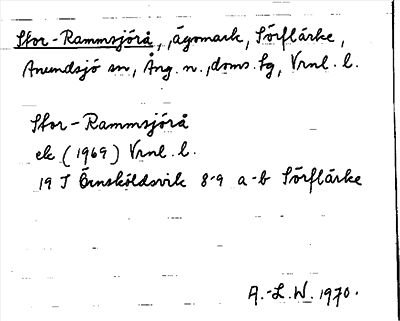 Stor-Rammsjörå, ägomark, Sörflärke,
Anundsjö sn, Ång. n., doms. bg, Vrnl. l.
Stor-Rammsjörå
ek (1969) Vrnl. l.
19 I Örnsköldsvik 8-9 a-b Sörflärke
A.-L.W. 1970.